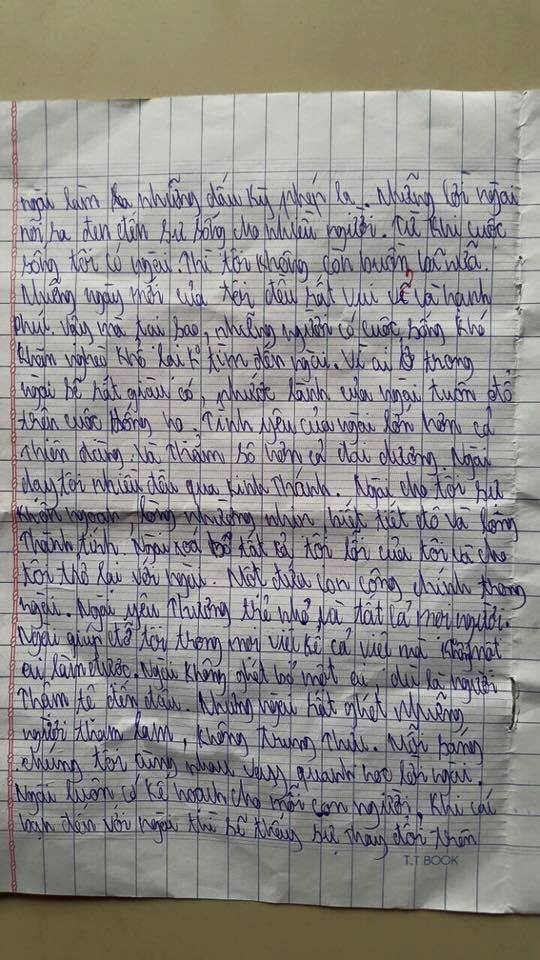 ngài làm ra những dấu kỳ phép lạ. Những lời ngài
nói ra đen đến sự sống cho nhiều người. Từ khi cuộc
sống tôi có ngài. Thì tôi không còn buồn bã nữa.
Những ngày mới của tôi đều rất vui vẽ và hạnh
phúc. Vậy mà tại sao, những người có cuộc sống khó
khăn nghèo khổ lại k tìm đến ngài. Vì ai ở trong
ngài sẽ rất giàu có, phước lành của ngài tuôn đổ
trên cuộc sống họ. Tình yêu của ngài lớn hơn cả
thiên đàng. Và thẳm sô hơn cả đại dương. Ngài
dạy tôi nhiều đều qua Kinh Thánh. Ngài cho tôi sự
khôn ngoan, lòng nhường nhịn, biết tiết độ và lòng
thành kính. Ngài xoá bỏ tất cả tội lỗi của tôi và cho
tôi trở lại với ngài. Một đứa con công chính trong
ngài. Ngài yêu thương trẻ nhỏ và tất cả mọi người.
Ngài giúp đỡ tôi trong mọi việt kể cả việt mà không một
ai làm được. Ngài không ghét bỏ một ai, dù là người
thậm tệ đến đâu. Nhưng ngài rất ghét những
người tham lam, không trung thực. Mỗi sáng
chúng tôi cùng nhau vây quanh học lời ngài.
Ngài luôn có kế hoạch cho mỗi con người. Khi các
bạn đến với ngài thì sẽ thấy sự thay đổi trên
T.T BOOK